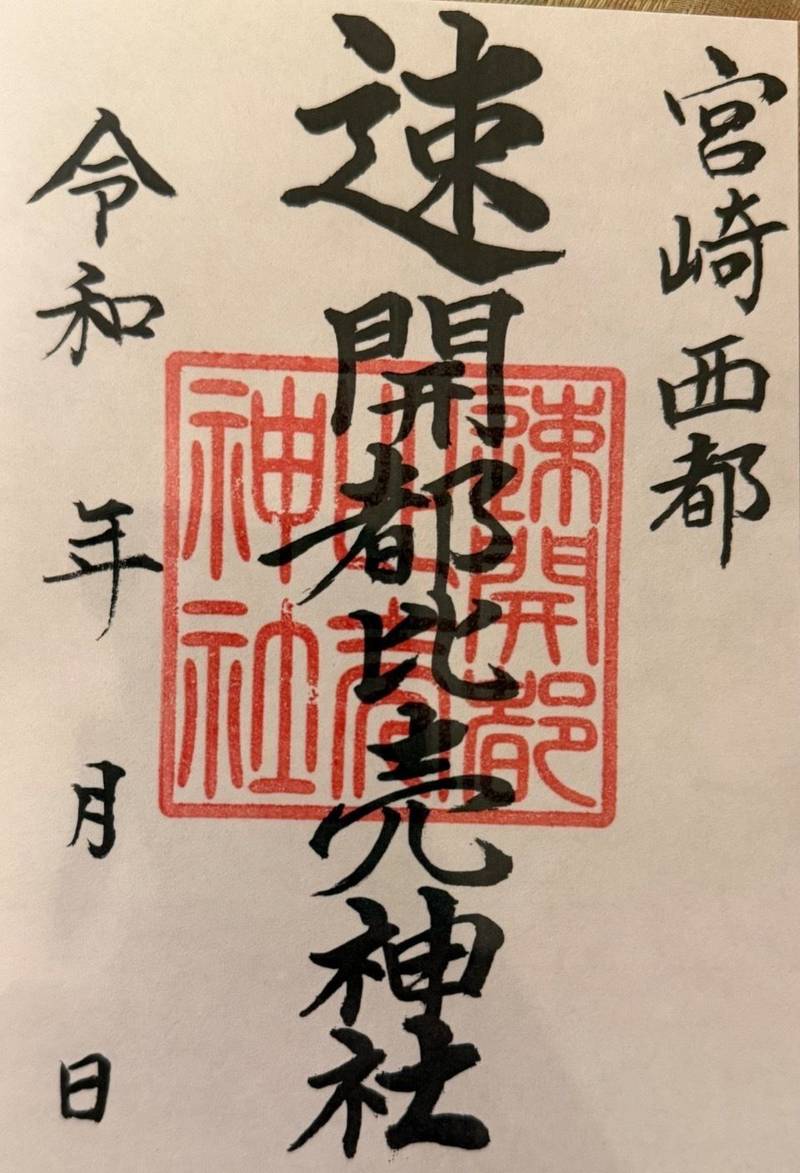 宮崎西都
速開都比売神社
令和 年 月 日
速開都
比売
神社